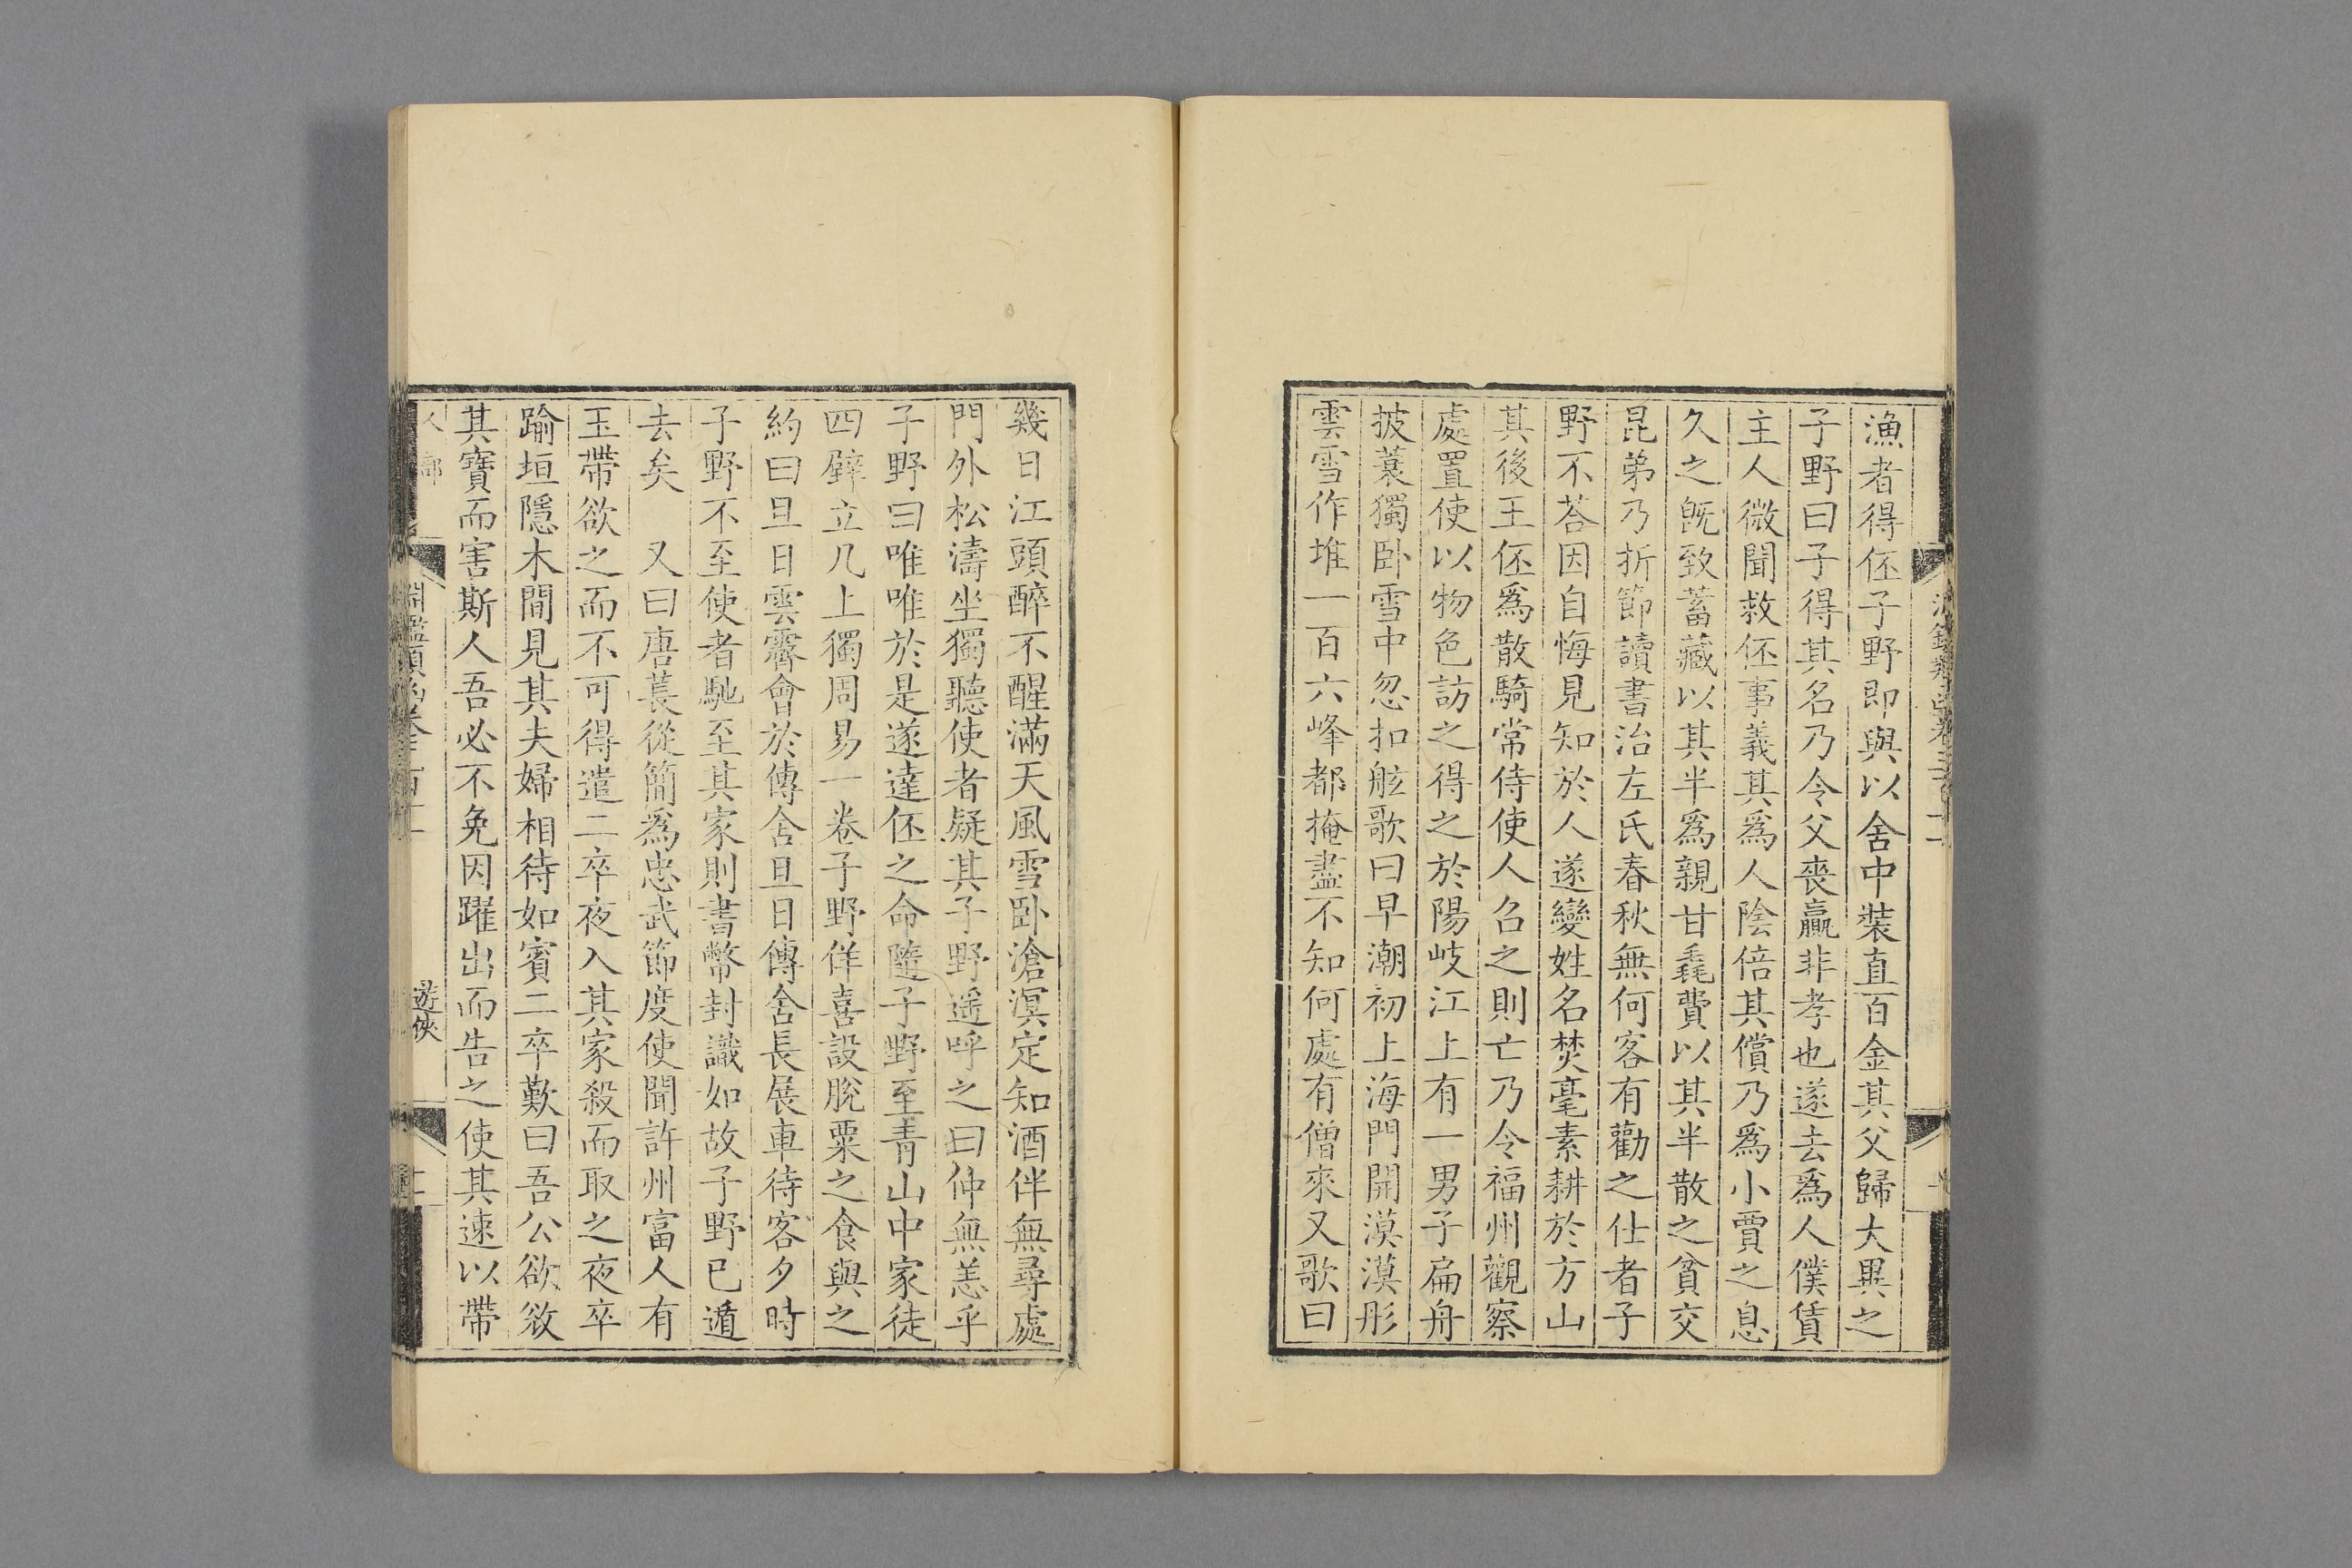 漁者得伾子野即與以舍中裝直百金其父歸大異之
子野曰子得其名乃令父喪贏非孝也遂去爲人僕賃
主人微聞救伾事義其爲人陰倍其償乃爲小賈之息
久之旣致蓄藏以其半爲親甘毳費以其半散之貧交
昆弟乃折節讀書治左氏春秋無何客有勸之仕者子
野不荅因自悔見知於人遂變姓名焚毫素耕於方山
其後王伾爲散騎常侍使人召之則亡乃令福州觀察
處置使以物色訪之得之於陽岐江上有一男子扁舟
披蓑獨卧雪中忽扣舷歌曰早潮初上海門開漠漠彤
雲雪作堆一百六峰都掩盡不知何處有僧來又歌曰
幾日江頭醉不醒滿天風雪卧滄溟定知酒伴無尋處
門外松濤坐獨聽使者疑其子野遥呼之曰仲無恙乎
子野曰唯唯於是遂達伾之命隨子野至青山中家徒
四壁立几上獨周易一卷子野佯喜設脫粟之食與之
約曰旦日雲霽會於傳舍旦日傳舍長展車待客夕時
子野不至使者馳至其家則書幣封識如故子野已遁
去矣　又曰唐萇從簡爲忠武節度使聞許州富人有
玉帶欲之而不可得遣二卒夜入其家殺而取之夜卒
踰垣隱木間見其夫婦相待如賓二卒歎曰吾公欲
其寶而害斯人吾必不免因躍出而告之使其速以帶
人部
淵鑑類函卷三百十一
遊俠